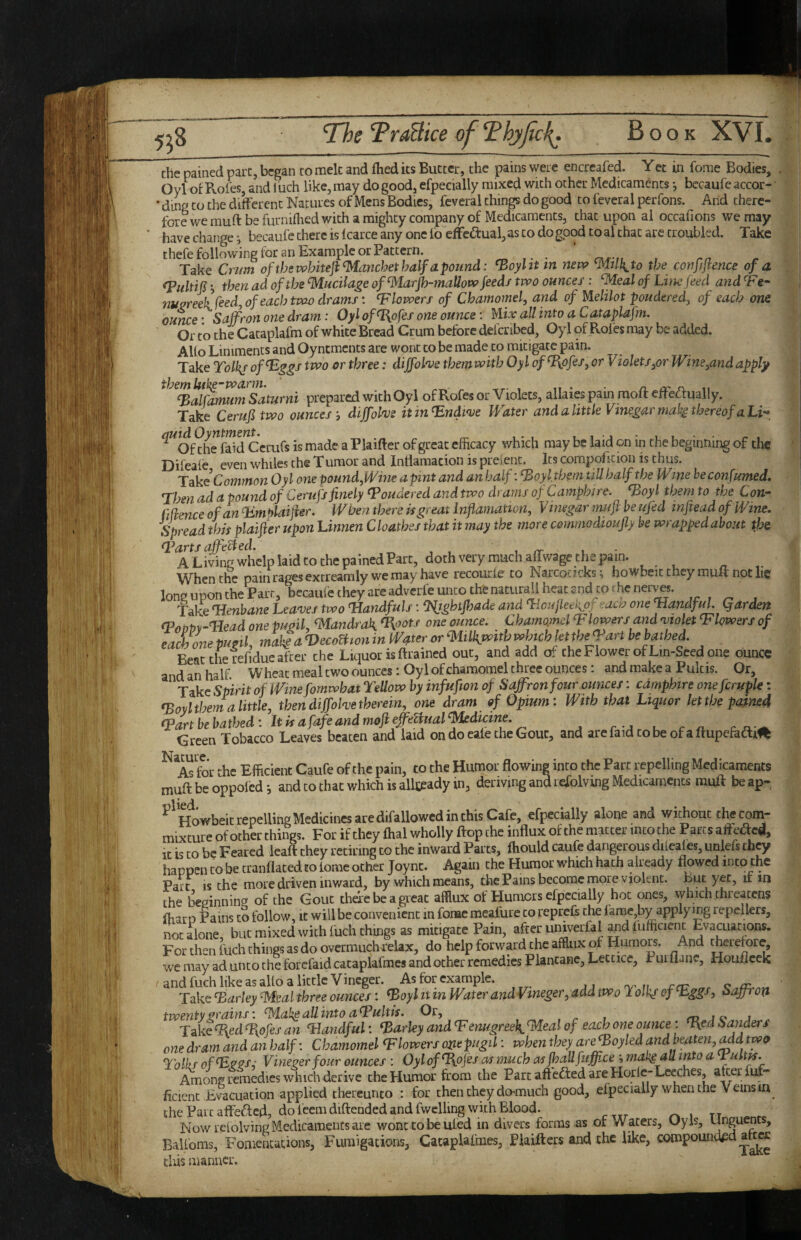 538 The Practice of Physick. Book XVI.
the pained part, began to melt and shed its Butter, the pains were encreased. Yet in some Bodies,
Oyl of Roses, and such like, may do good, especially mixed with other Medicaments; because accor-
ding to the different Natures of Mens Bodies, several things do good to several persons. And there-
fore we must be furnished with a mighty company of Medicaments, that upon al occasions we may
have change; because there is scarce any one so effectual, as to do good to al that are troubled. Take
these following for an Example or Pattern.
Take Crum of the whitest Manchet half a pound: Boyl it in new Milk to the consistence of a
Pultiss; then ad of the Mucilage of Marsh-mallow seeds two ounces: Meal of Line seed and Fe-
nugreek seed, of each two drams: Flowers of Chamomel, and of Melilot poudered, of each one
ounce: Saffron one dram: Oyl of Roses one ounce: Mix all into a Cataplasm.
Or to the Cataplasm of white Bread Crum before described, Oyl of Roses may be added.
Also Liniments and Oyntments are wont to be made to mitigate pain.
Take Yolks of Eggs two or three: dissolve them with Oyl of Roses, or Violets, or Wine, and apply
them luke-warm.
Balsamum Saturni prepared with Oyl of Roses or Violets, allaies pain most effectually.
Take Ceruss two ounces; dissolve it in Endive Water and a little Vinegar make thereof a Li-
quid Oyntment.
Of the said Cerufs is made a Plaister of great efficacy which may be laid on in the beginning of the
Disease, even whiles the Tumor and Inflamation is present. Its composition is thus.
Take Common Oyl one pound, Wine a pint and an half: Boyl them till half the Wine be consumed.
Then ad a pound of Cerufs finely Poudered and two drams of Camphire. Boyl them to the Con-
sistence of an Emplaister. When there is great Inflamation, Vinegar must be used instead of Wine.
Spread this plaister upon Linnen Cloathes that it may the more commodiously be wrapped about the
Parts affected.
A Living whelp laid to the pained Part, doth very much asswage the pain.
When the pain rages extreamly we may have recourse to Narcoticks; howbeit they must not lie
long upon the Part, because they are adverse unto the naturall heat and to the nerves.
Take Henbane Leaves two Handfuls: Nightshade and Housleek, of each one Handful. Garden
Poppy-Head one pugil, Mandrak Roots one ounce. Chamomel Flowers and violet Flowers of
each one pugil, make a Decoction in Water or Milk, with which let the Part be bathed.
Beat the residue after the Liquor is strained out, and add of the Flower of Lin-Seed one ounce
and an half. Wheat meal two ounces: Oyl of chamomel three ounces: and make a Pultis. Or,
Take Spirit of Wine somwhat Yellow by infusion of Saffron four ounces: camphire one scruple:
Boyl them a little, then dissolve therein, one dram of Opium: With that Liquor let the pained
Part be bathed: It is a safe and most effectual Medicine.
Green Tobacco Leaves beaten and laid on do ease the Gout, and are said to be of a stupefactive
Nature.
As for the Efficient Cause of the pain, to the Humor flowing into the Part repelling Medicaments
must be opposed; and to that which is already in, deriving and resolving Medicaments must be ap-
plied.
Howbeit repelling Medicines are disallowed in this Case, especially alone and without the com-
mixture of other things. For if they shal wholly stop the influx of the matter into the Parts affected,
it is to be Feared least they retiring to the inward Parts, should cause dangerous diseases, unless they
happen to be translated to some other Joynt. Again the Humor which hath already flowed into the
Part, is the more driven inward, by which means, the Pains become more violent. But yet, if in
the beginning of the Gout there be a great afflux of Humors especially hot ones, which threatens
sharp Pains to follow, it will be convenient in some measure to repress the same, by applying repellers,
not alone, but mixed with such things as mitigate Pain, after universal and sufficient Evacuations.
For then such things as do overmuch relax, do help forward the afflux of Humors. And therefore,
we may ad unto the foresaid cataplasmes and other remedies Plantane, Lettice, Purslane, Housleek
and such like as also a little Vineger. As for example.
Take Barley Meal three ounces: Boyl it in Water and Vineger, add two Yolks of Eggs, Saffron
twenty grains: Make all into a Pultis. Or,
Take Red Roses an Handful: Barley and Fenugreek Meal of each one ounce: Red Sanders
one dram and an half: Chamomel Flowers one pugil: when they are Boyled and beaten, add two
Yolks of Eggs, Vineger four ounces: Oyl of Roses as much as shall suffice; make all into a Pultis.
Among remedies which derive the Humor from the Part affected are Horse-Leeches, after suf-
ficient Evacuation applied thereunto: for then they do much good, especially when the Veins in
the Part affected, do seem distended and swelling with Blood.
Now resolving Medicaments are wont to be used in divers forms as of Waters, Oyls, Unguents,
Balsoms, Fomentations, Fumigations, Cataplasmes, Plaisters and the like, compounded after
this manner.
Take